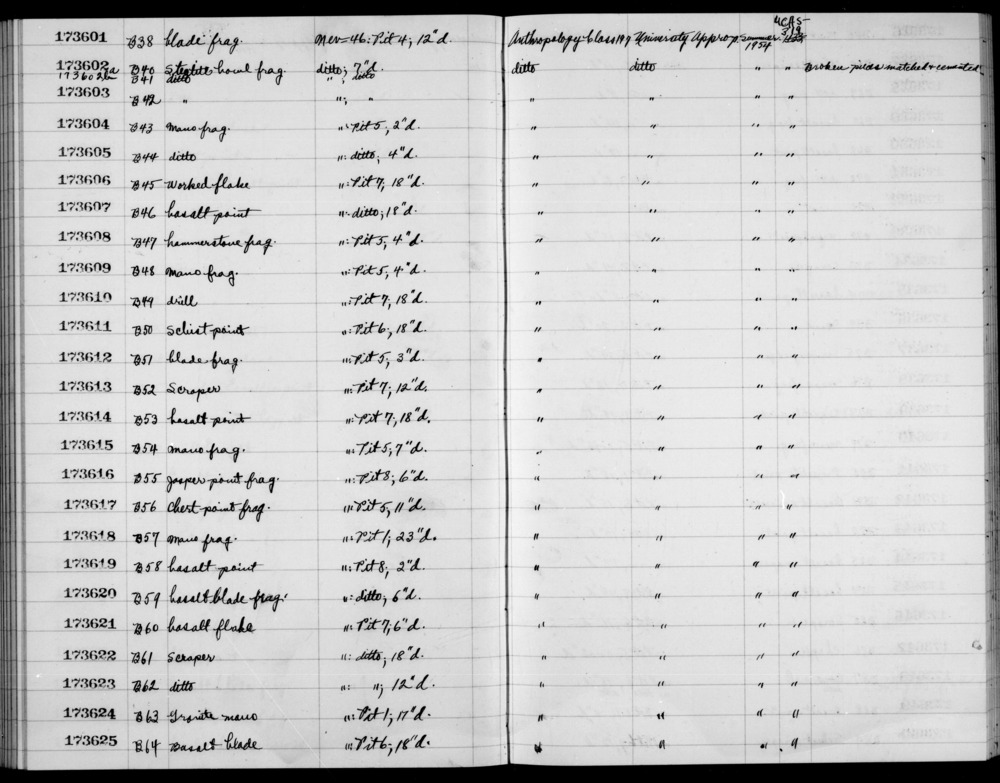 UCAS-
319
173601 B38 blade frag. Nev=46: Pit 4; 12"d. Anthropology Class 197 University Approp. summer 1954
173602a B40 Steatite bowl frag. ditto; 7"d. ditto ditto " " Broken pieces matched + cemented
173602b B41 ditto " ; ditto
173603 B42 " "; " " " " "
173604 B43 Mano frag. ": Pit 5; 2"d. " " " "
173605 B44 ditto ": ditto; 4"d. " " " "
173606 B45 Worked flake ": Pit 7; 18"d. " " " "
173607 B46 basalt point ": ditto; 18"d. " " " "
173608 B47 hammerstone frag. ": Pit 5; 4"d. " " " "
173609 B48 Mano frag. ": Pit 5; 4"d. " " " "
173610 B49 drill ": Pit 7; 18"d. " " " "
173611 B50 Schist point ": Pit 6; 18"d. " " " "
173612 B51 blade frag. ": Pit 5; 3"d. " " " "
173613 B52 Scraper ": Pit 7; 12"d. " " " "
173614 B53 basalt point ": Pit 7; 18"d. " " " "
173615 B54 mano frag. ": Pit 5; 7"d. " " " "
173616 B55 Jasper point frag. ": Pit 8; 6"d. " " " "
173617 B56 Chert point frag. ": Pit 5; 11"d. " " " "
173618 B57 mano frag. ": Pit 1; 23"d. " " " "
173619 B58 basalt point ": Pit 8; 2"d. " " " "
173620 B59 basalt blade frag. ": ditto; 6"d. " " " "
173621 B60 basalt flake ": Pit 7; 6"d. " " " "
173622 B61 Scraper ": ditto; 18"d. " " " "
173623 B62 ditto ": "; 12"d. " " " "
173624 B63 Granite mano ": Pit 1; 17"d. " " " "
173625 B64 Basalt blade ": Pit 6; 18"d. " " " "